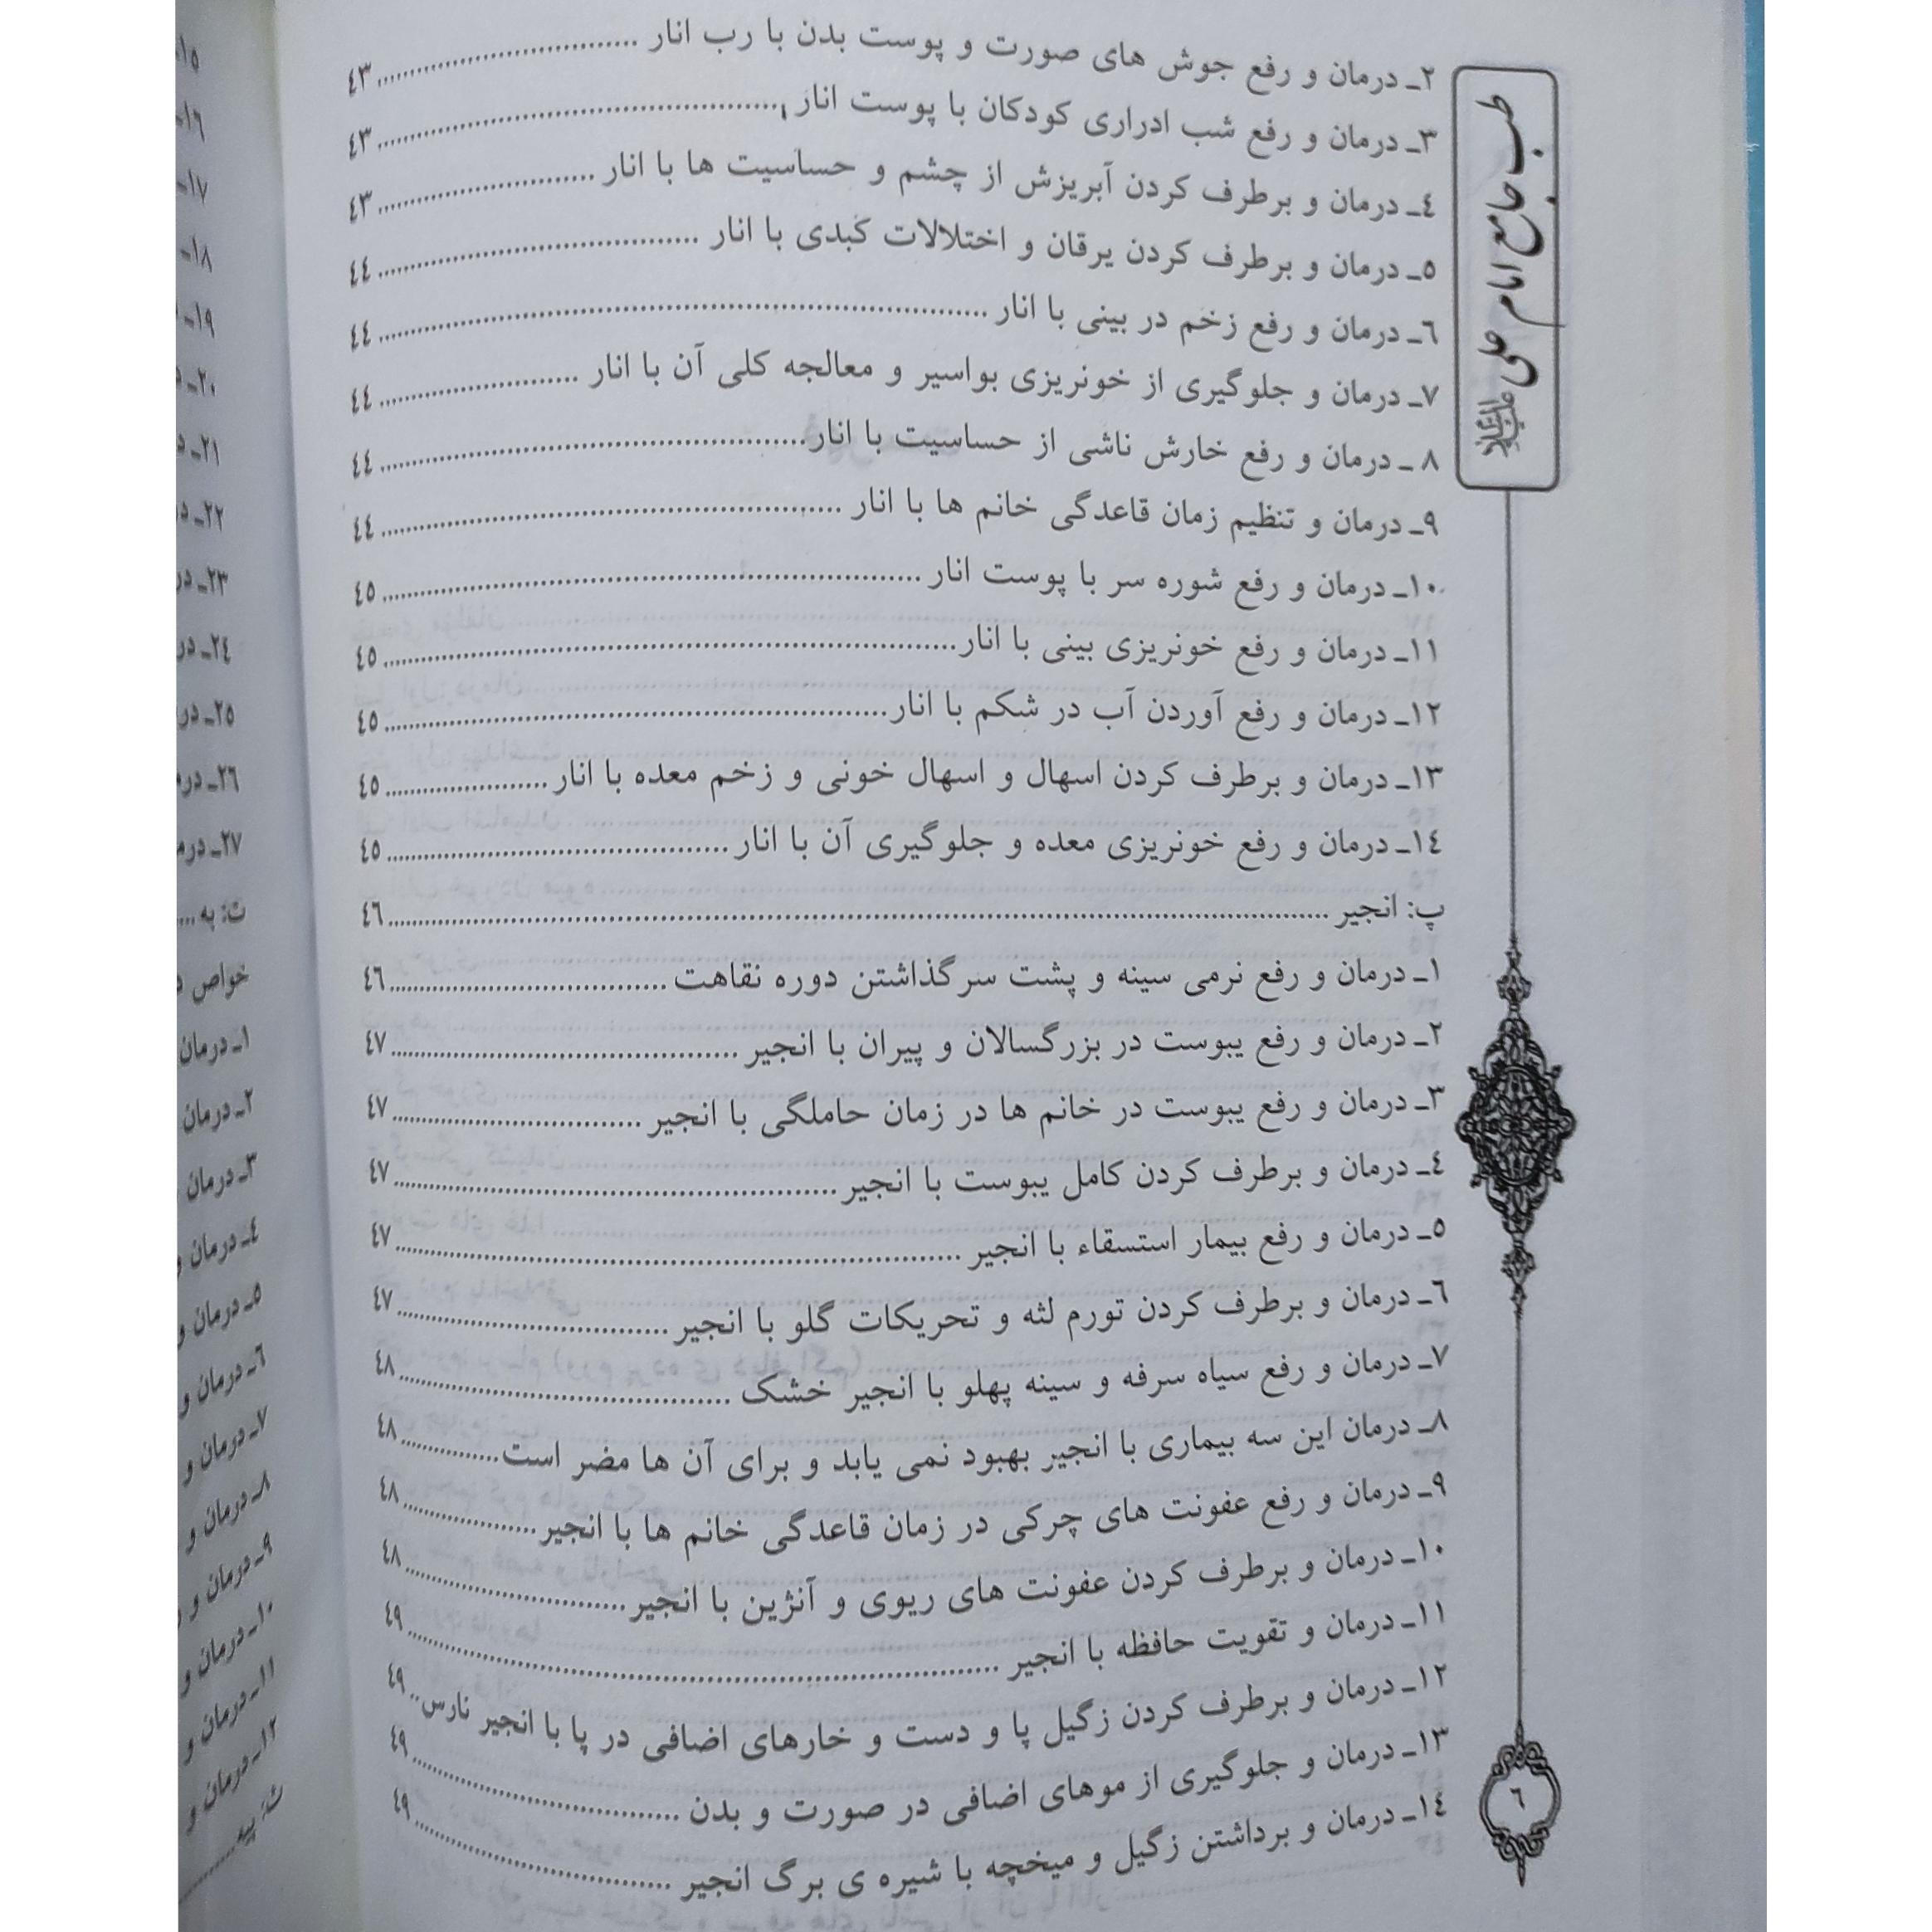 طب جامع امام علی علیه‌السلام
۲ـ درمان و رفع جوش های صورت و پوست بدن با رب انار ........ ٤۳
۳ـ درمان و رفع شب ادراری کودکان با پوست انار ........ ٤۳
٤ـ درمان و برطرف کردن آبریزش از چشم و حساسیت ها با انار ........ ٤۳
٥ـ درمان و برطرف کردن یرقان و اختلالات کبدی با انار ........ ٤٤
٦ـ درمان و رفع زخم در بینی با انار ........ ٤٤
۷ـ درمان و جلوگیری از خونریزی بواسیر و معالجه کلی آن با انار ........ ٤٤
۸ ـ درمان و رفع خارش ناشی از حساسیت با انار ........ ٤٤
۹ـ درمان و تنظیم زمان قاعدگی خانم ها با انار ........ ٤٤
۱۰ـ درمان و رفع شوره سر با پوست انار ........ ٤٥
۱۱ـ درمان و رفع خونریزی بینی با انار ........ ٤٥
۱۲ـ درمان و رفع آوردن آب در شکم با انار ........ ٤٥
۱۳ـ درمان و برطرف کردن اسهال و اسهال خونی و زخم معده با انار ........ ٤٥
۱٤ـ درمان و رفع خونریزی معده و جلوگیری آن با انار ........ ٤٥
پ: انجیر ........ ٤٦
۱ـ درمان و رفع نرمی سینه و پشت سرگذاشتن دوره نقاهت ........ ٤٦
۲ـ درمان و رفع یبوست در بزرگسالان و پیران با انجیر ........ ٤۷
۳ـ درمان و رفع یبوست در خانم ها در زمان حاملگی با انجیر ........ ٤۷
٤ـ درمان و برطرف کردن کامل یبوست با انجیر ........ ٤۷
٥ـ درمان و رفع بیمار استسقاء با انجیر ........ ٤۷
٦ـ درمان و برطرف کردن تورم لثه و تحریکات گلو با انجیر ........ ٤۷
۷ـ درمان و رفع سیاه سرفه و سینه پهلو با انجیر خشک ........ ٤۸
۸ـ درمان این سه بیماری با انجیر بهبود نمی یابد و برای آن ها مضر است ........ ٤۸
۹ـ درمان و رفع عفونت های چرکی در زمان قاعدگی خانم ها با انجیر ........ ٤۸
۱۰ـ درمان و برطرف کردن عفونت های ریوی و آنژین با انجیر ........ ٤۸
۱۱ـ درمان و تقویت حافظه با انجیر ........ ٤۹
۱۲ـ درمان و برطرف کردن زگیل پا و دست و خارهای اضافی در پا با انجیر نارس .. ٤۹
۱۳ـ درمان و جلوگیری از موهای اضافی در صورت و بدن ........ ٤۹
۱٤ـ درمان و برداشتن زگیل و میخچه با شیره ی برگ انجیر ........ ٤۹
٦
۱٥ـ
۱٦ـ
۱۷ـ
۱۸ـ
۱۹ـ
۲۰ـ
۲۱ـ
۲۲ـ
۲۳ـ
۲٤ـ
۲٥ـ
۲٦ـ
۲۷ـ
ت: به ....
خواص
۱ـ درمان
۲ـ درمان
۳ـ درمان
٤ـ درمان و
٥ـ درمان و
٦ـ درمان و
۷ـ درمان و
۸ـ درمان و
۹ـ درمان و
۱۰ـ درمان و
۱۱ـ درمان و
۱۲ـ درمان و